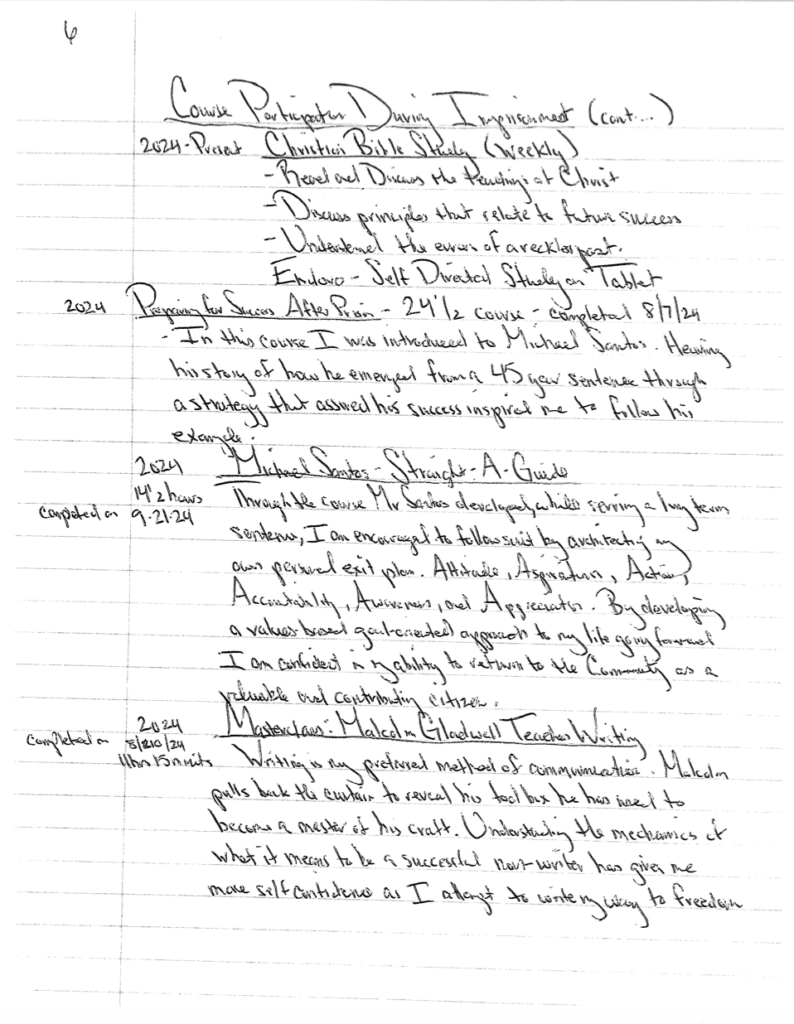 6
Course Participation During Imprisonment (cont...)
2024-Present Christian Bible Study (Weekly)
- Read and Discuss the teachings of Christ
- Discuss principles that relate to future success
- Understand the errors of a reckless past.
Endovo - Self Directed Study on Tablet
2024 Preparing for Success After Prison - 24 1/2 course - completed 8/7/24
- In this course I was introduced to Michael Santos. Hearing
his story of how he emerged from a 45 year sentence through
a strategy that assured his success inspired me to follow his
example.
2024 Michael Santos - Straight-A-Guide
14 1/2 hours Through the course Mr Santos developed, while serving a long term
Completed on 9-21-24 sentence, I am encouraged to follow suit by architecting my
own personal exit plan. Attitude, Aspiration, Action,
Accountability, Awareness, and Appreciation. By developing
a values based goal-oriented approach to my life going forward
I am confident in my ability to return to the Community as a
valuable and contributing citizen.
2024 Masterclass: Malcolm Gladwell Teaches Writing
Completed on 8/20/24
11hrs 15 minits Writing is my preferred method of communication. Malcolm
pulls back the curtain to reveal his tool box he has used to
become a master of his craft. Understanding the mechanics of
what it means to be a successful writer has given me
more self confidence as I attempt to write my way to freedom